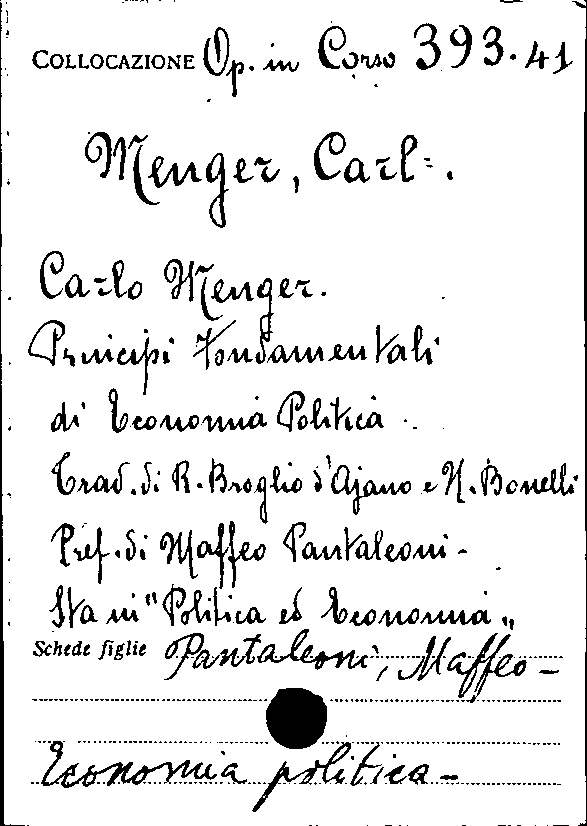 COLLOCAZIONE Op. in Corso 393.41
Menger, Carl=.
Carlo Menger.
Principi fondamentali
di Economia Politica.
Trad. di R. Broglio d'Ajano e N. Bonelli
Pref. di Maffeo Pantaleoni -
Sta in "Politica ed Economia„
Schede figlie Pantaleoni, Maffeo -
Economia politica -